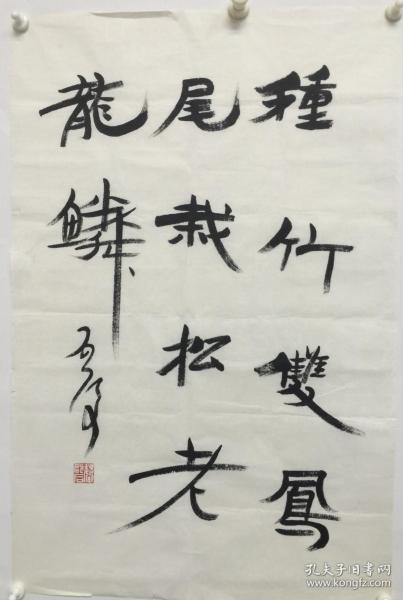 種竹雙鳳
尾栽松老
龍鱗
孔夫子旧书网